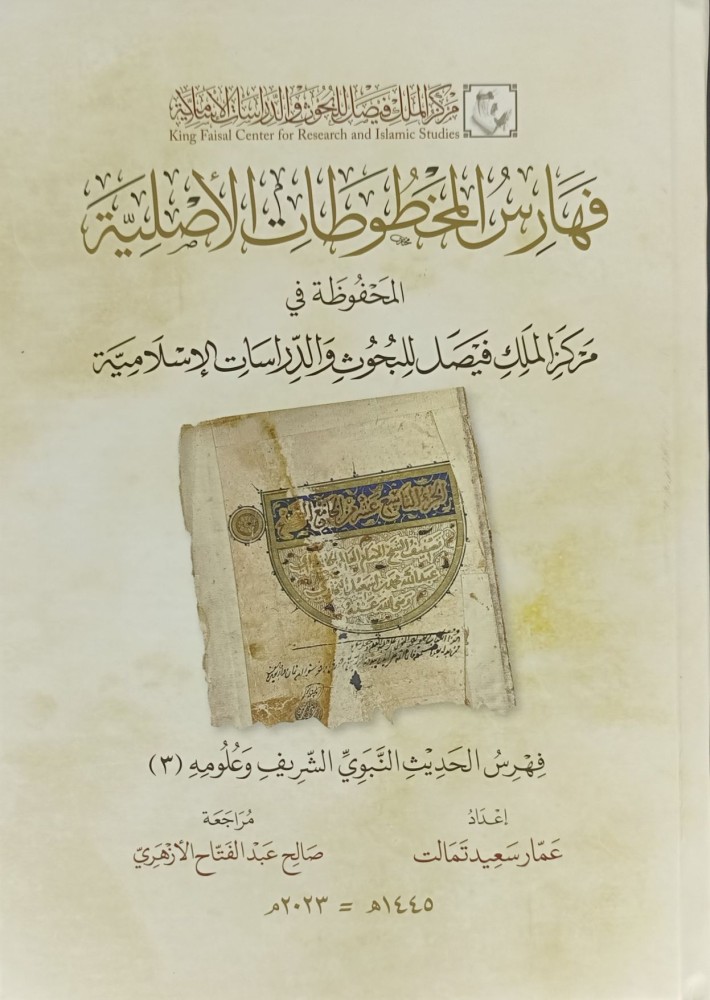 مركز الملك فيصل للبحوث والدراسات الإسلامية
King Faisal Center for Research and Islamic Studies
فَهَارِسُ المَخْطُوطَاتِ الأَصْلِيَّة
المَحْفُوظَة في
مَرْكَزِ المَلِكِ فَيْصَل لِلبُحُوثِ وَالدِّرَاسَاتِ الإِسْلَامِيَّة
الجزء التاسع عشر من الجامع الصحيح
فِهْرِسُ الحَدِيْثِ النَّبَوِيِّ الشَّرِيفِ وَعُلُومِهِ (٣)
إعْدَادُ
عَمَّار سَعِيد تَمَالت
مُرَاجَعَة
صَالِح عَبْد الفَتَّاح الأَزْهَرِيّ
١٤٤٥هـ = ٢٠٢٣م